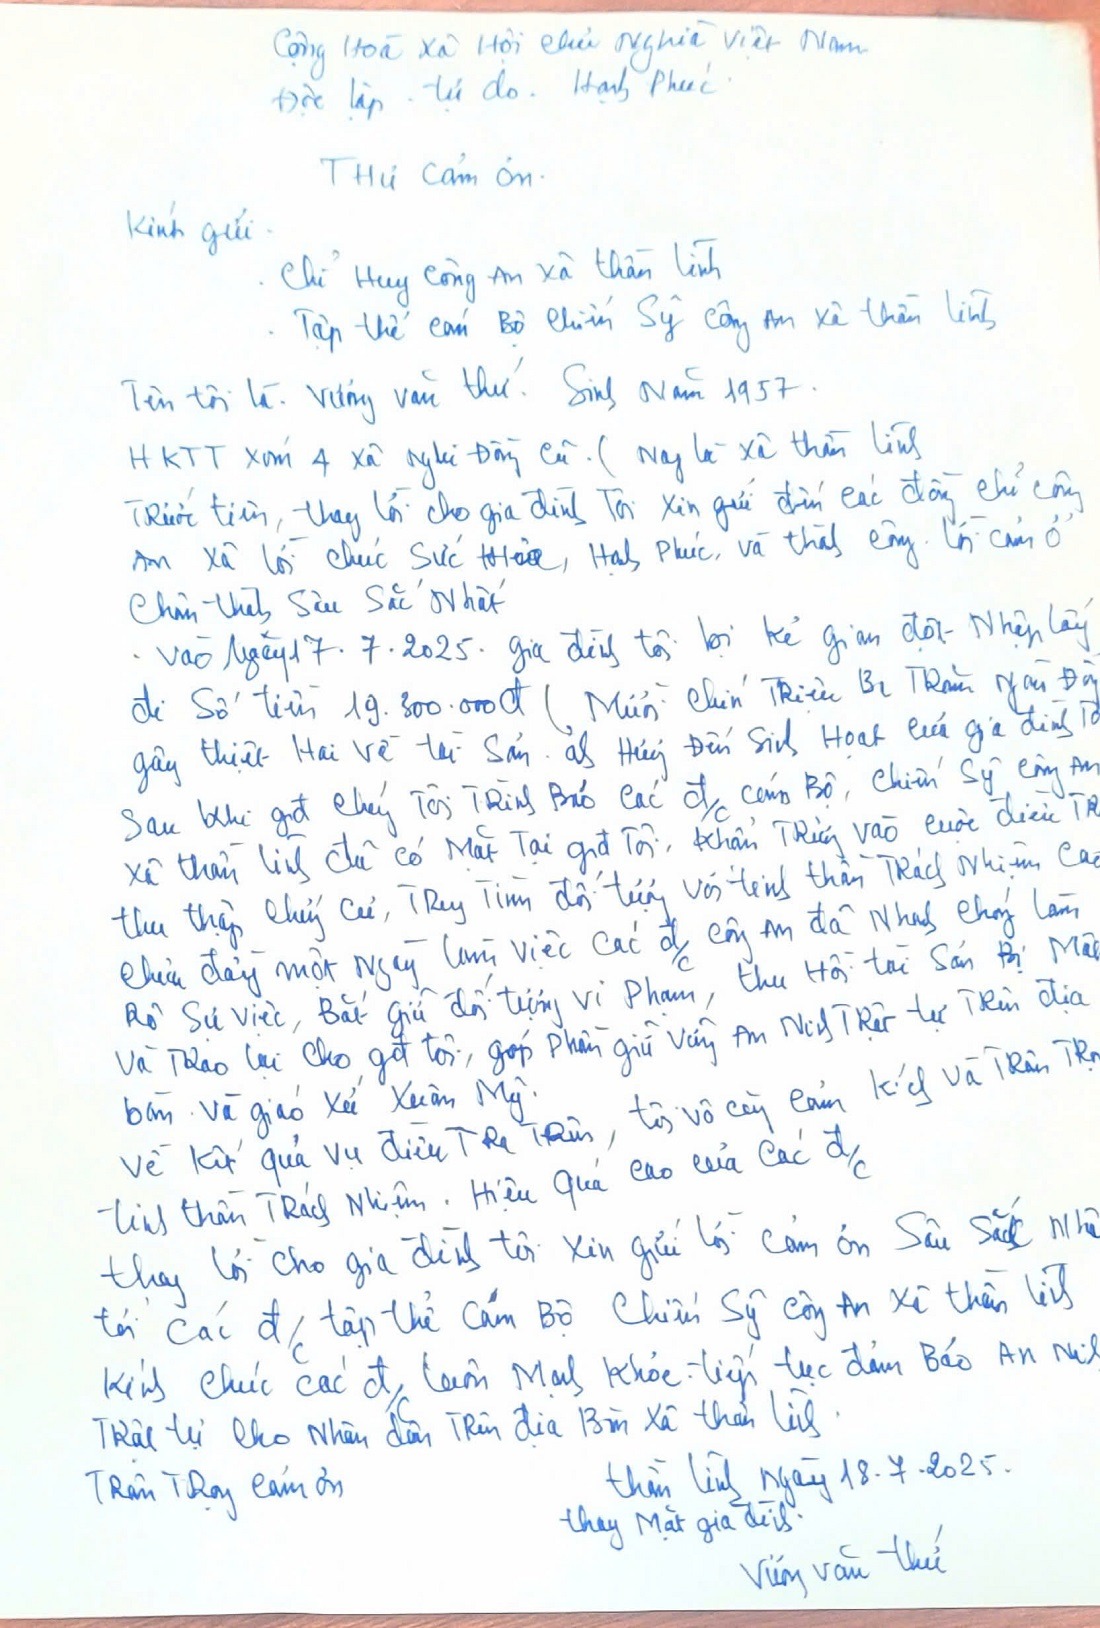 Cộng Hoà xã Hội chủ Nghĩa Việt Nam
Độc lập. tự do. Hạnh Phúc.
THư cảm ơn.
Kính gửi.
. Chỉ Huy công An xã thần lĩnh
. Tập thể cán Bộ chiến Sỹ công An xã thần lĩnh
Tên tôi là. Vương văn thư. Sinh Năm 1957.
HKTT xóm 4 xã Nghi Đồng cũ. ( Nay là xã thần lĩnh
TRước tiên, thay lời cho gia đình Tôi xin gửi đến các đồng chí công
An xã lời chúc Sức Hỏe, Hạnh Phúc, và thành công. lời cảm ơ
Chân thành Sâu Sắc Nhất
. vào Ngày 17. 7. 2025. gia đình tôi bị kẻ gian đột Nhập lấy
đi Số tiền 19.300.000đ ( Mười chín TRiệu Ba TRăm Ngàn Đồ
gây thiệt Hại về tài Sản. ảh Hưởng Đến Sinh Hoạt của gia đình Tô
Sau khi gđ chúng Tôi TRình Báo các đ/c cán Bộ, chiến Sỹ công An
xã thần lĩnh đã có Mặt Tại gđ Tôi, khẩn TRương vào cuộc điều TR
thu thập chứng cứ, TRuy Tìm đối tượng với tinh thần TRách Nhiệm cao
chưa đầy một Ngày làm việc các đ/c công An đã Nhanh chóng làm
Rõ Sự việc, Bắt giữ đối tượng vi Phạm, thu Hồi tài Sản Bị Mất
và TRao lại cho gđ tôi, góp Phần giữ vững An Ninh TRật tự TRên địa
bàn. và giáo xứ Xuân Mỹ.
về kết quả vụ điều TRa TRên, tôi vô cùng cảm kích và TRân TRọ
tinh thần TRách Nhiệm. Hiệu Quả cao của các đ/c
thay lời cho gia đình tôi xin gửi lời cảm ơn Sâu Sắc Nhấ
tới các đ/c tập thể Cán Bộ Chiến Sỹ công An xã thần lĩnh
kính chúc các đ/c luôn Mạnh khỏe. tiếp tục đảm Bảo An Ninh
TRật tự cho Nhân dân TRên địa Bàn xã thần lĩnh.
TRân TRọng cảm ơn
thần lĩnh Ngày 18. 7. 2025.
thay Mặt gia đình.
Vương văn thư